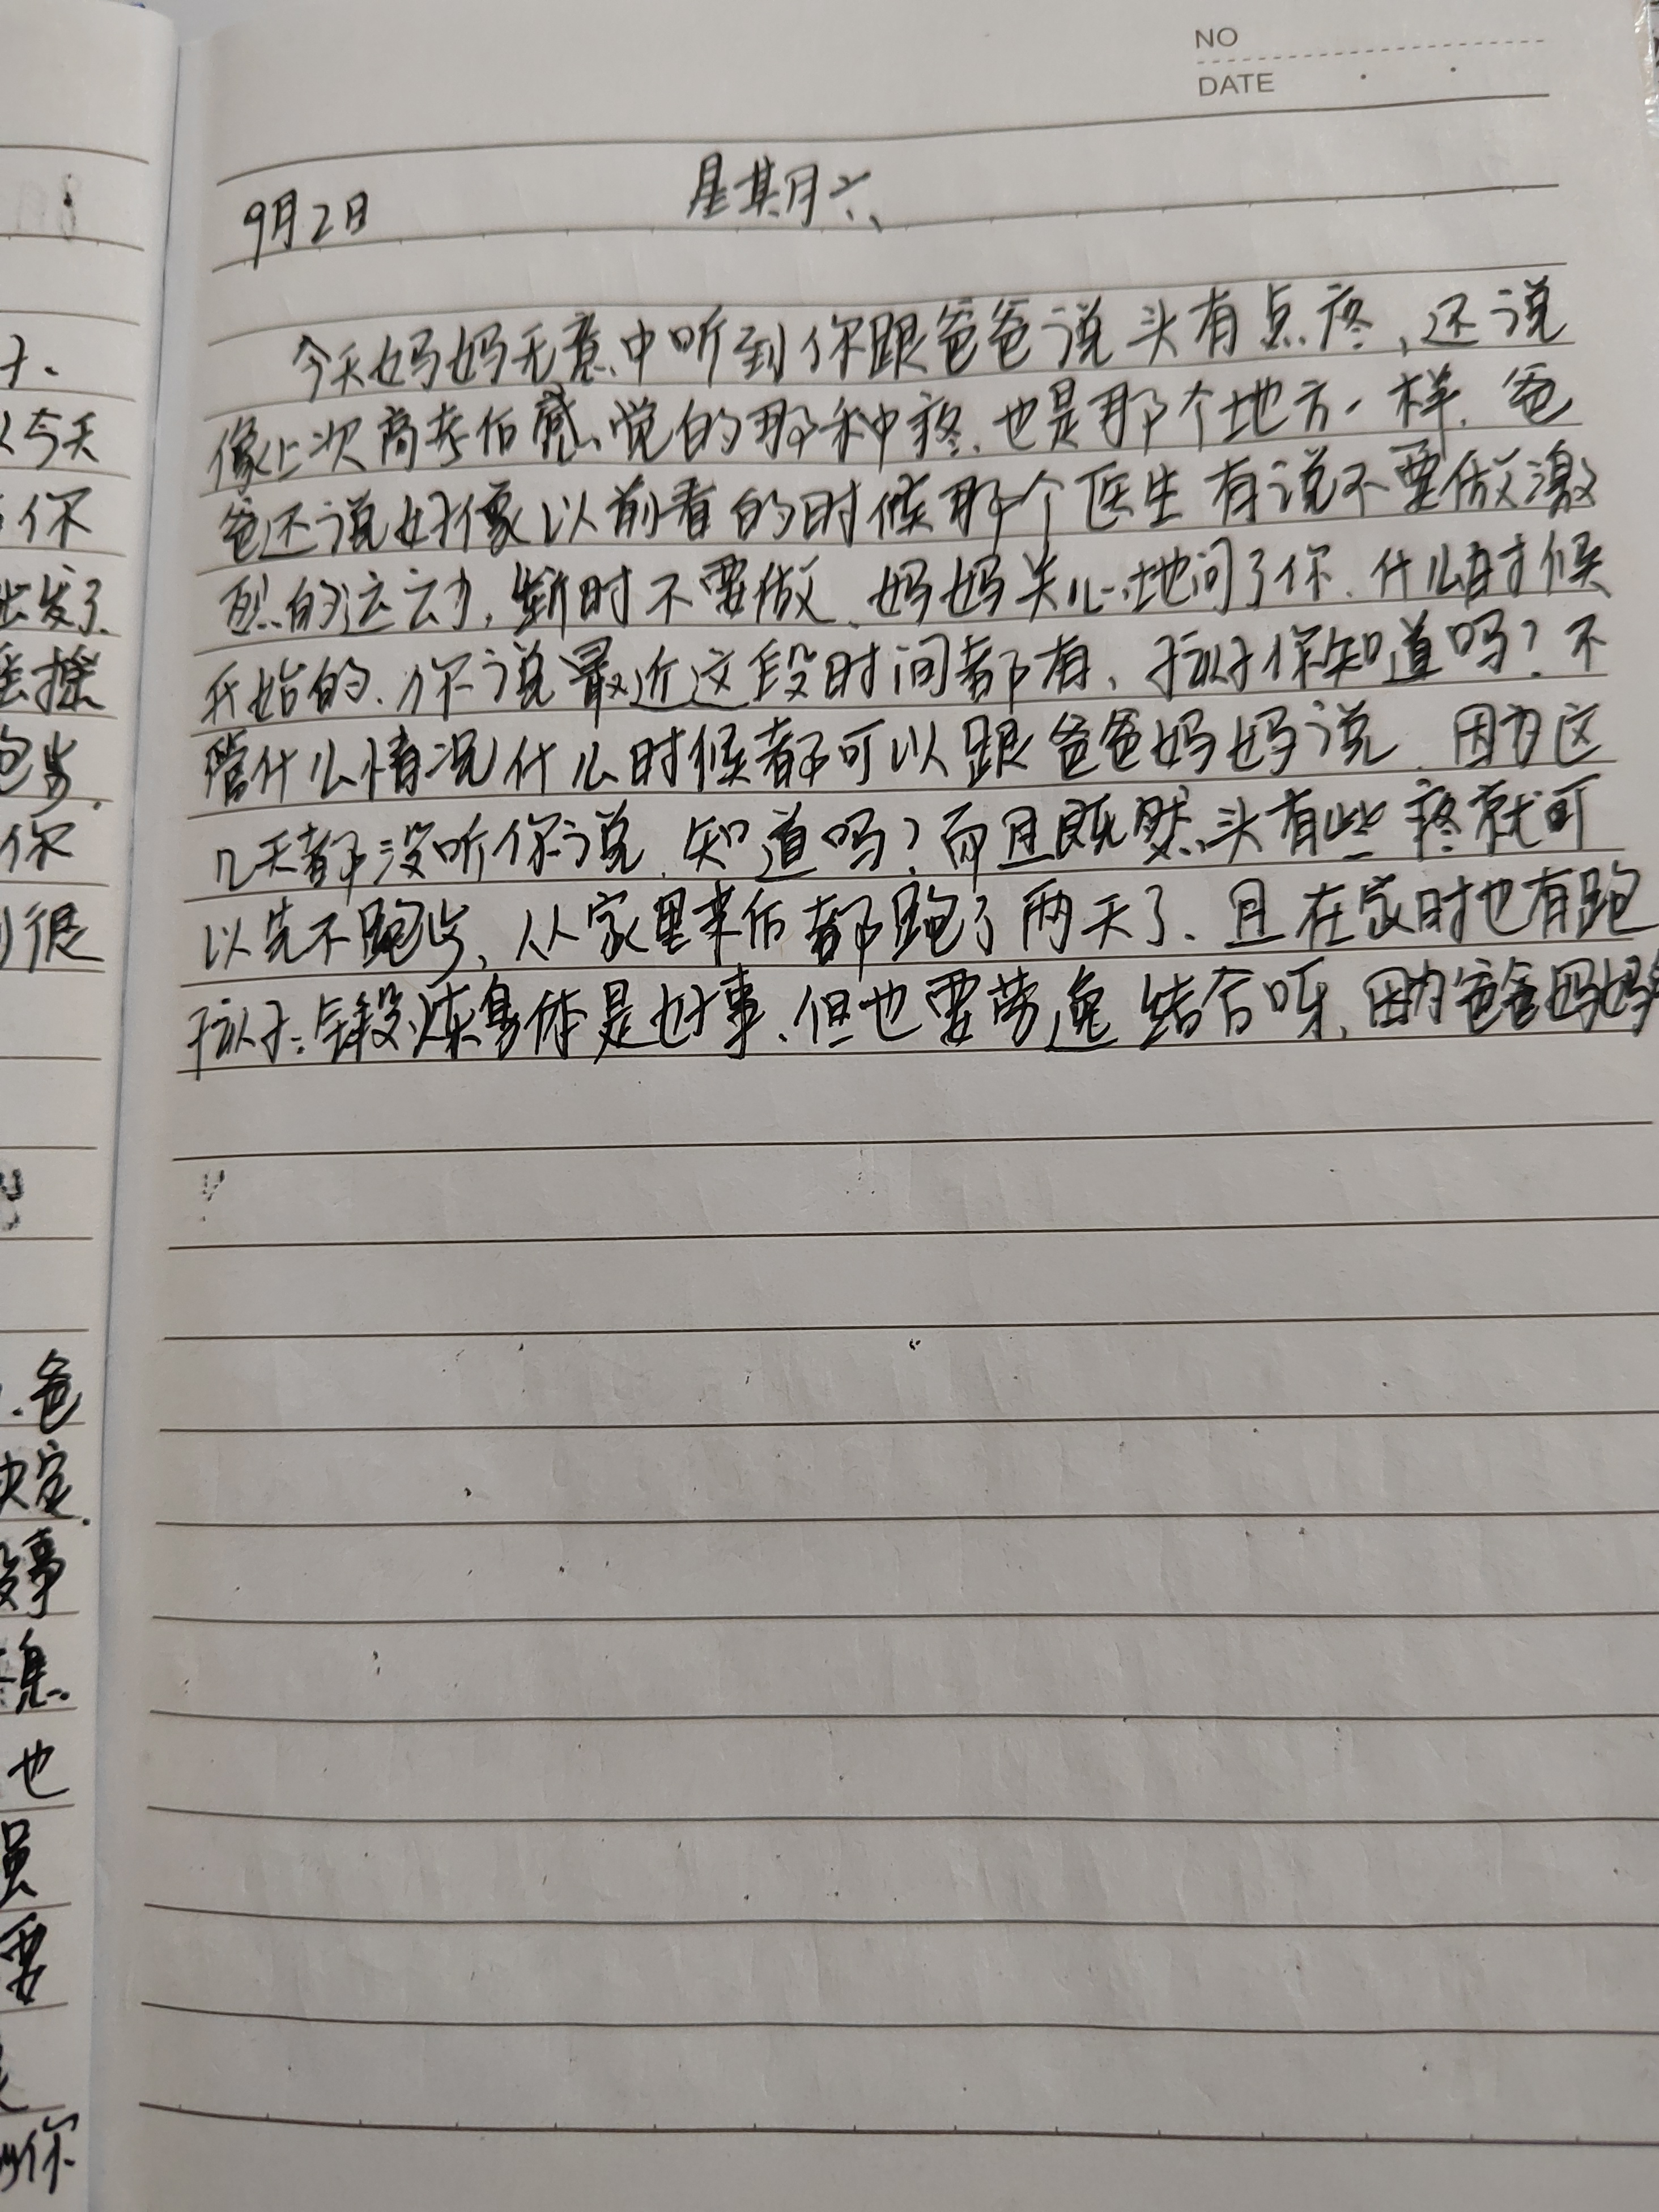 NO
DATE
9月2日 星期六
今天妈妈无意中听到你跟爸爸说头有点疼,还说
像上次高考后感觉的那种疼.也是那个地方一样.爸
爸还说好像以前看的时候那个医生有说不要做激
烈的运动,暂时不要做.妈妈关心地问了你.什么时候
开始的.你说最近这段时间都有、孩子你知道吗?不
管什么情况什么时候都可以跟爸爸妈妈说.因为这
几天都没听你说.知道吗?而且既然头有些疼就可
以先不跑步、从家里来后都跑了两天了、且在家时也有跑
孩子:锻炼身体是好事、但也要劳逸结合呀.因为爸爸妈妈
今天
你
出发了.
你
很
.爸
决定.
没事
息.
也
要
你